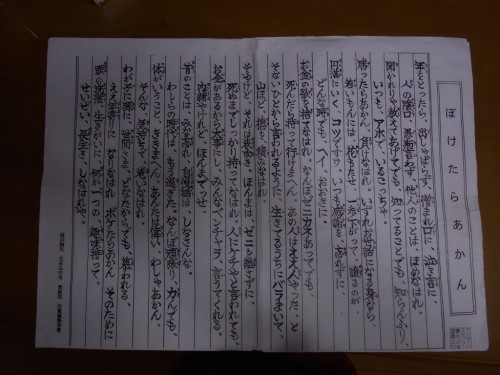 ぼけたらあかん
年をとったら 出しゃばらず、憎まれ口に、泣き言に、
人の陰口、愚痴言わず、他人のことは、ほめなはれ。
聞かれりゃ教えてあげてでも、知ってることでも、知らんふり、
いつも、アホで、いるこっちゃ。
勝ったらあかん、負けなはれ、いづれお世話になる身なら、
若いもんには花もたせ、一歩さがって、譲るのが、
円満にいくコツですわ。いつも感謝を忘れずに、
どんな時でも、ヘイ、おおきに。
お金の欲を捨てなはれ、なんぼゼニカネあってでも、
死んだら持って行けまへん。あの人はええ人やった、と
そないひとから言われるように、生きてるうちにバラまいて、
山ほど、徳を積みなはれ。
そやけど、それは表向き、ほんまは、ゼニを離さずに、
死ぬまでしっかり持ってなはれ、人にケチやと言われても、
お金があるから大事にし、みんなベンチャラ、言うてくれる。
内緒やけれど、ほんまでっせ。
昔のことは、みな忘れ、自慢話は、しなさんな、
わしらの時代は、もう過ぎた、なんぼ頑張り、カんでも、
体がいうこと、ききまへん。あんたは偉い、わしゃあかん、
そんな気持ちで、おいなはれ。
わが子に孫に、世間さま、どなたからでも、慕われる、
ええ年寄りに、なりなはれ、ボケたらあかん、そのために
頭の洗濯、生きがいに、何か一つの趣味持って、
せいぜい、長生き、しなはれや。